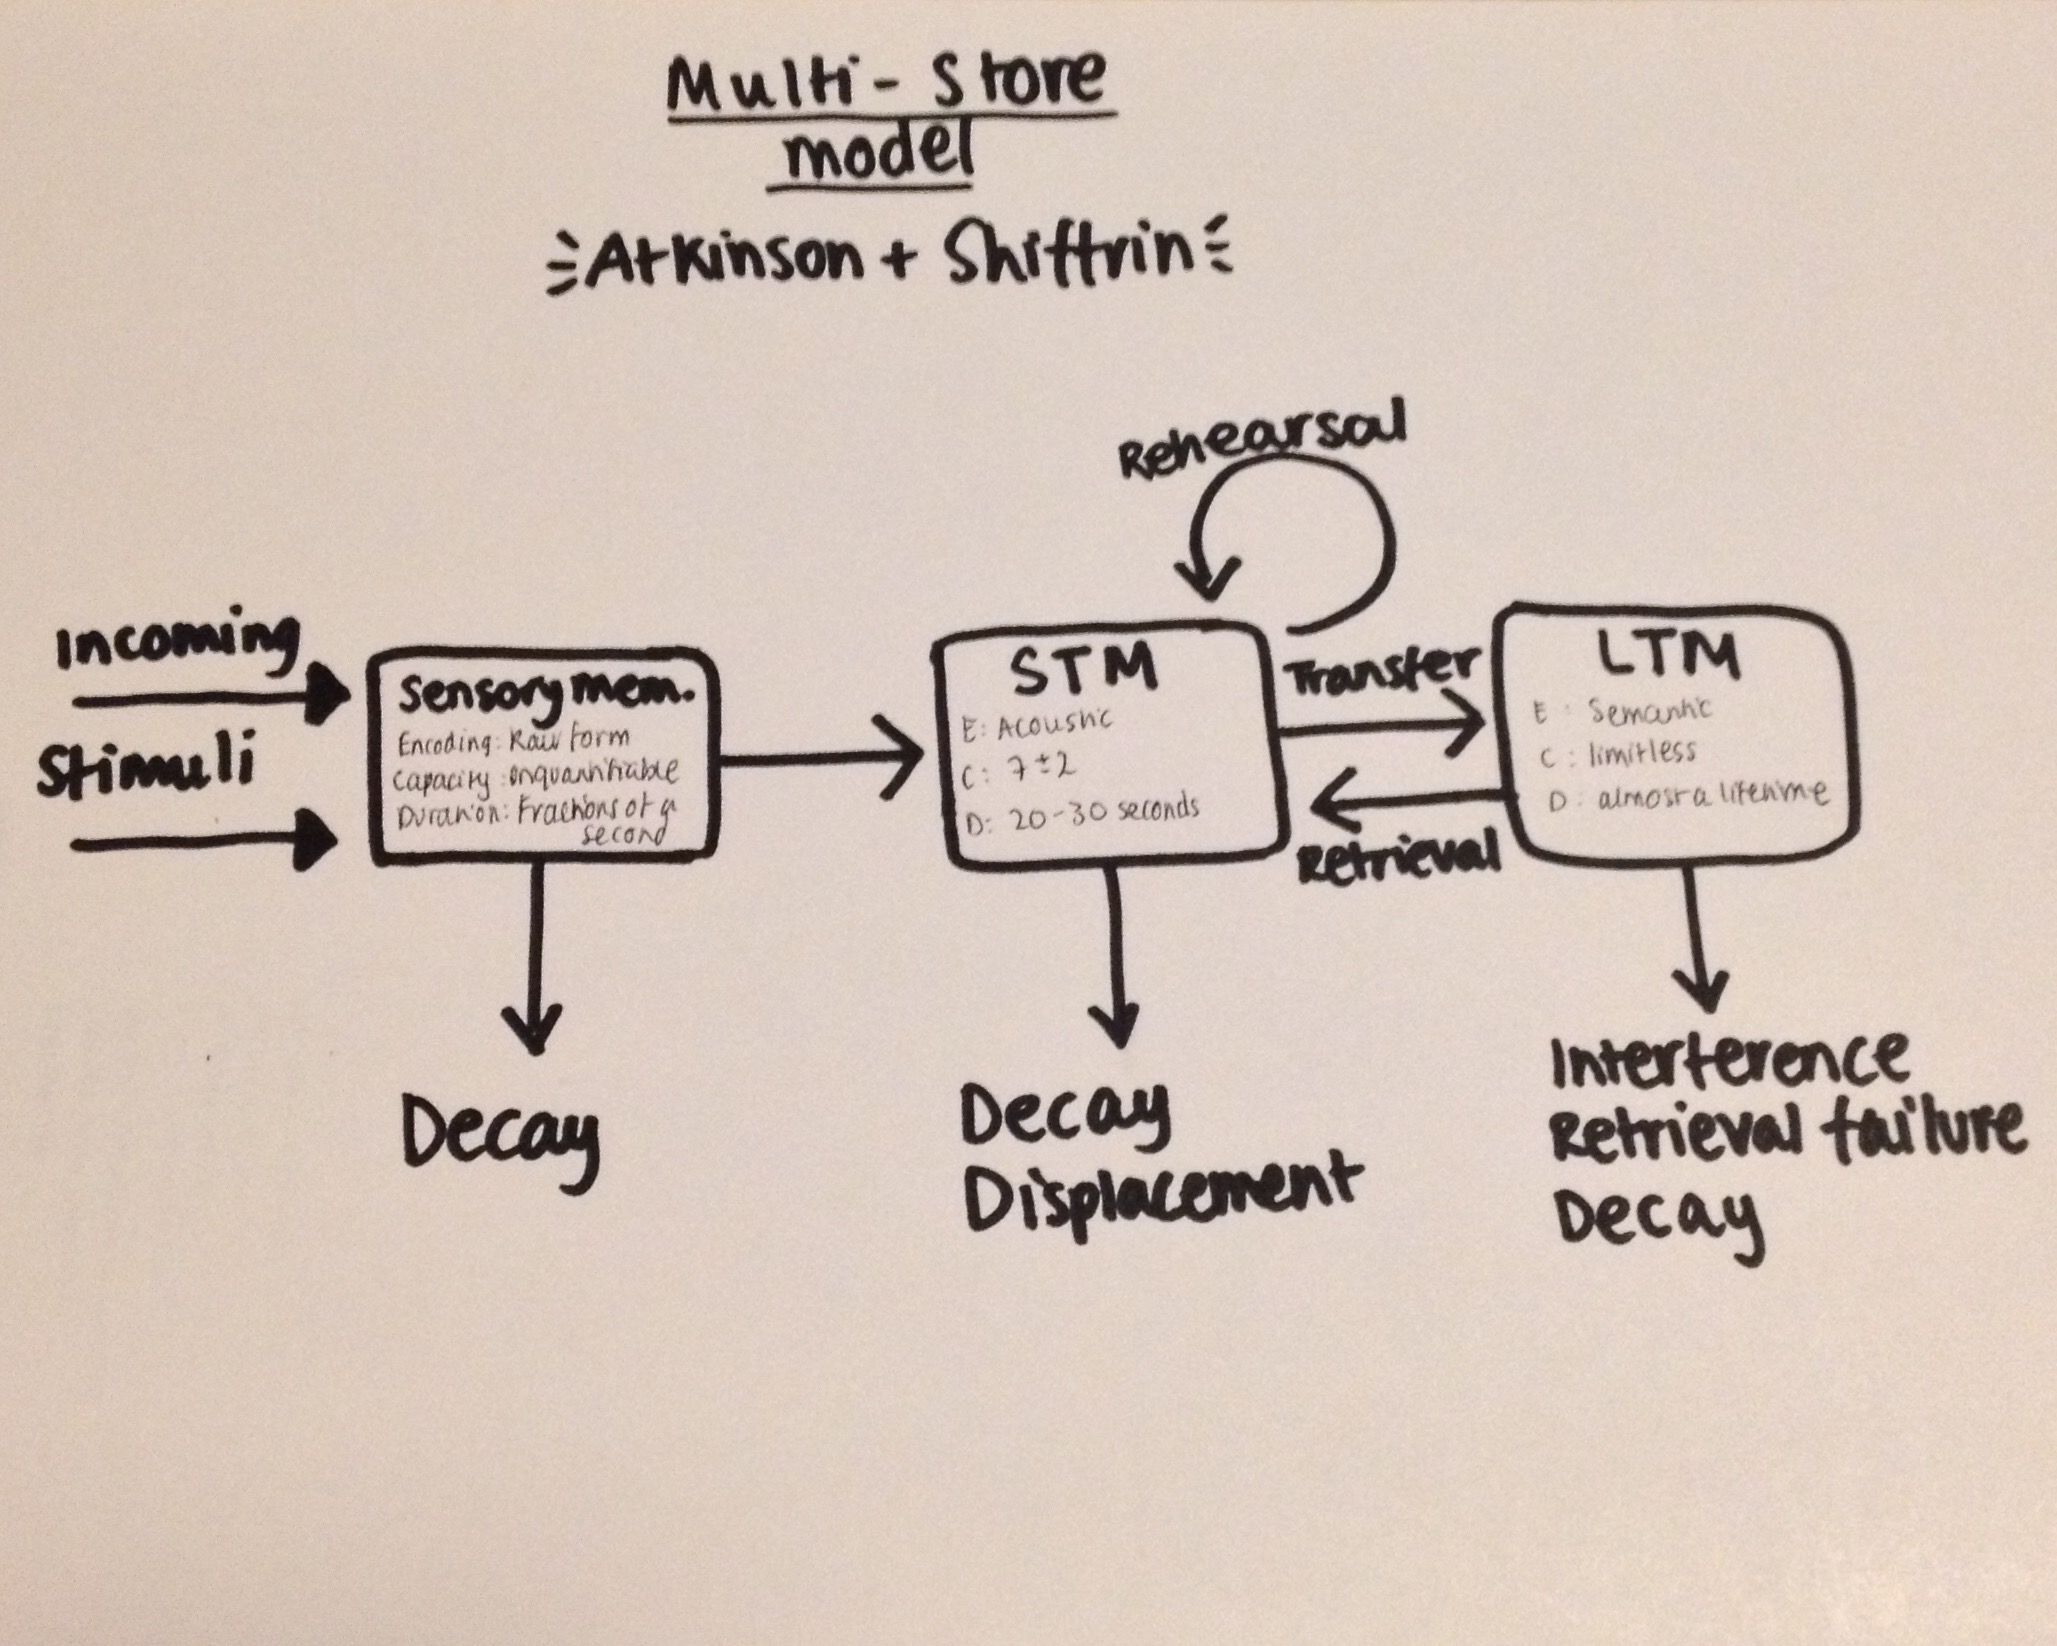 Multi-Store
model
Atkinson + Shiffrin
Rehearsal
Incoming
Stimuli
Sensory mem.
Encoding: Raw form
Capacity: Unquantifiable
Duration: Fractions of a
second
STM
E: Acoustic
C: 7±2
D: 20-30 seconds
Transfer
Retrieval
LTM
E: Semantic
C: limitless
D: almost a lifetime
Decay
Decay
Displacement
Interference
Retrieval failure
Decay